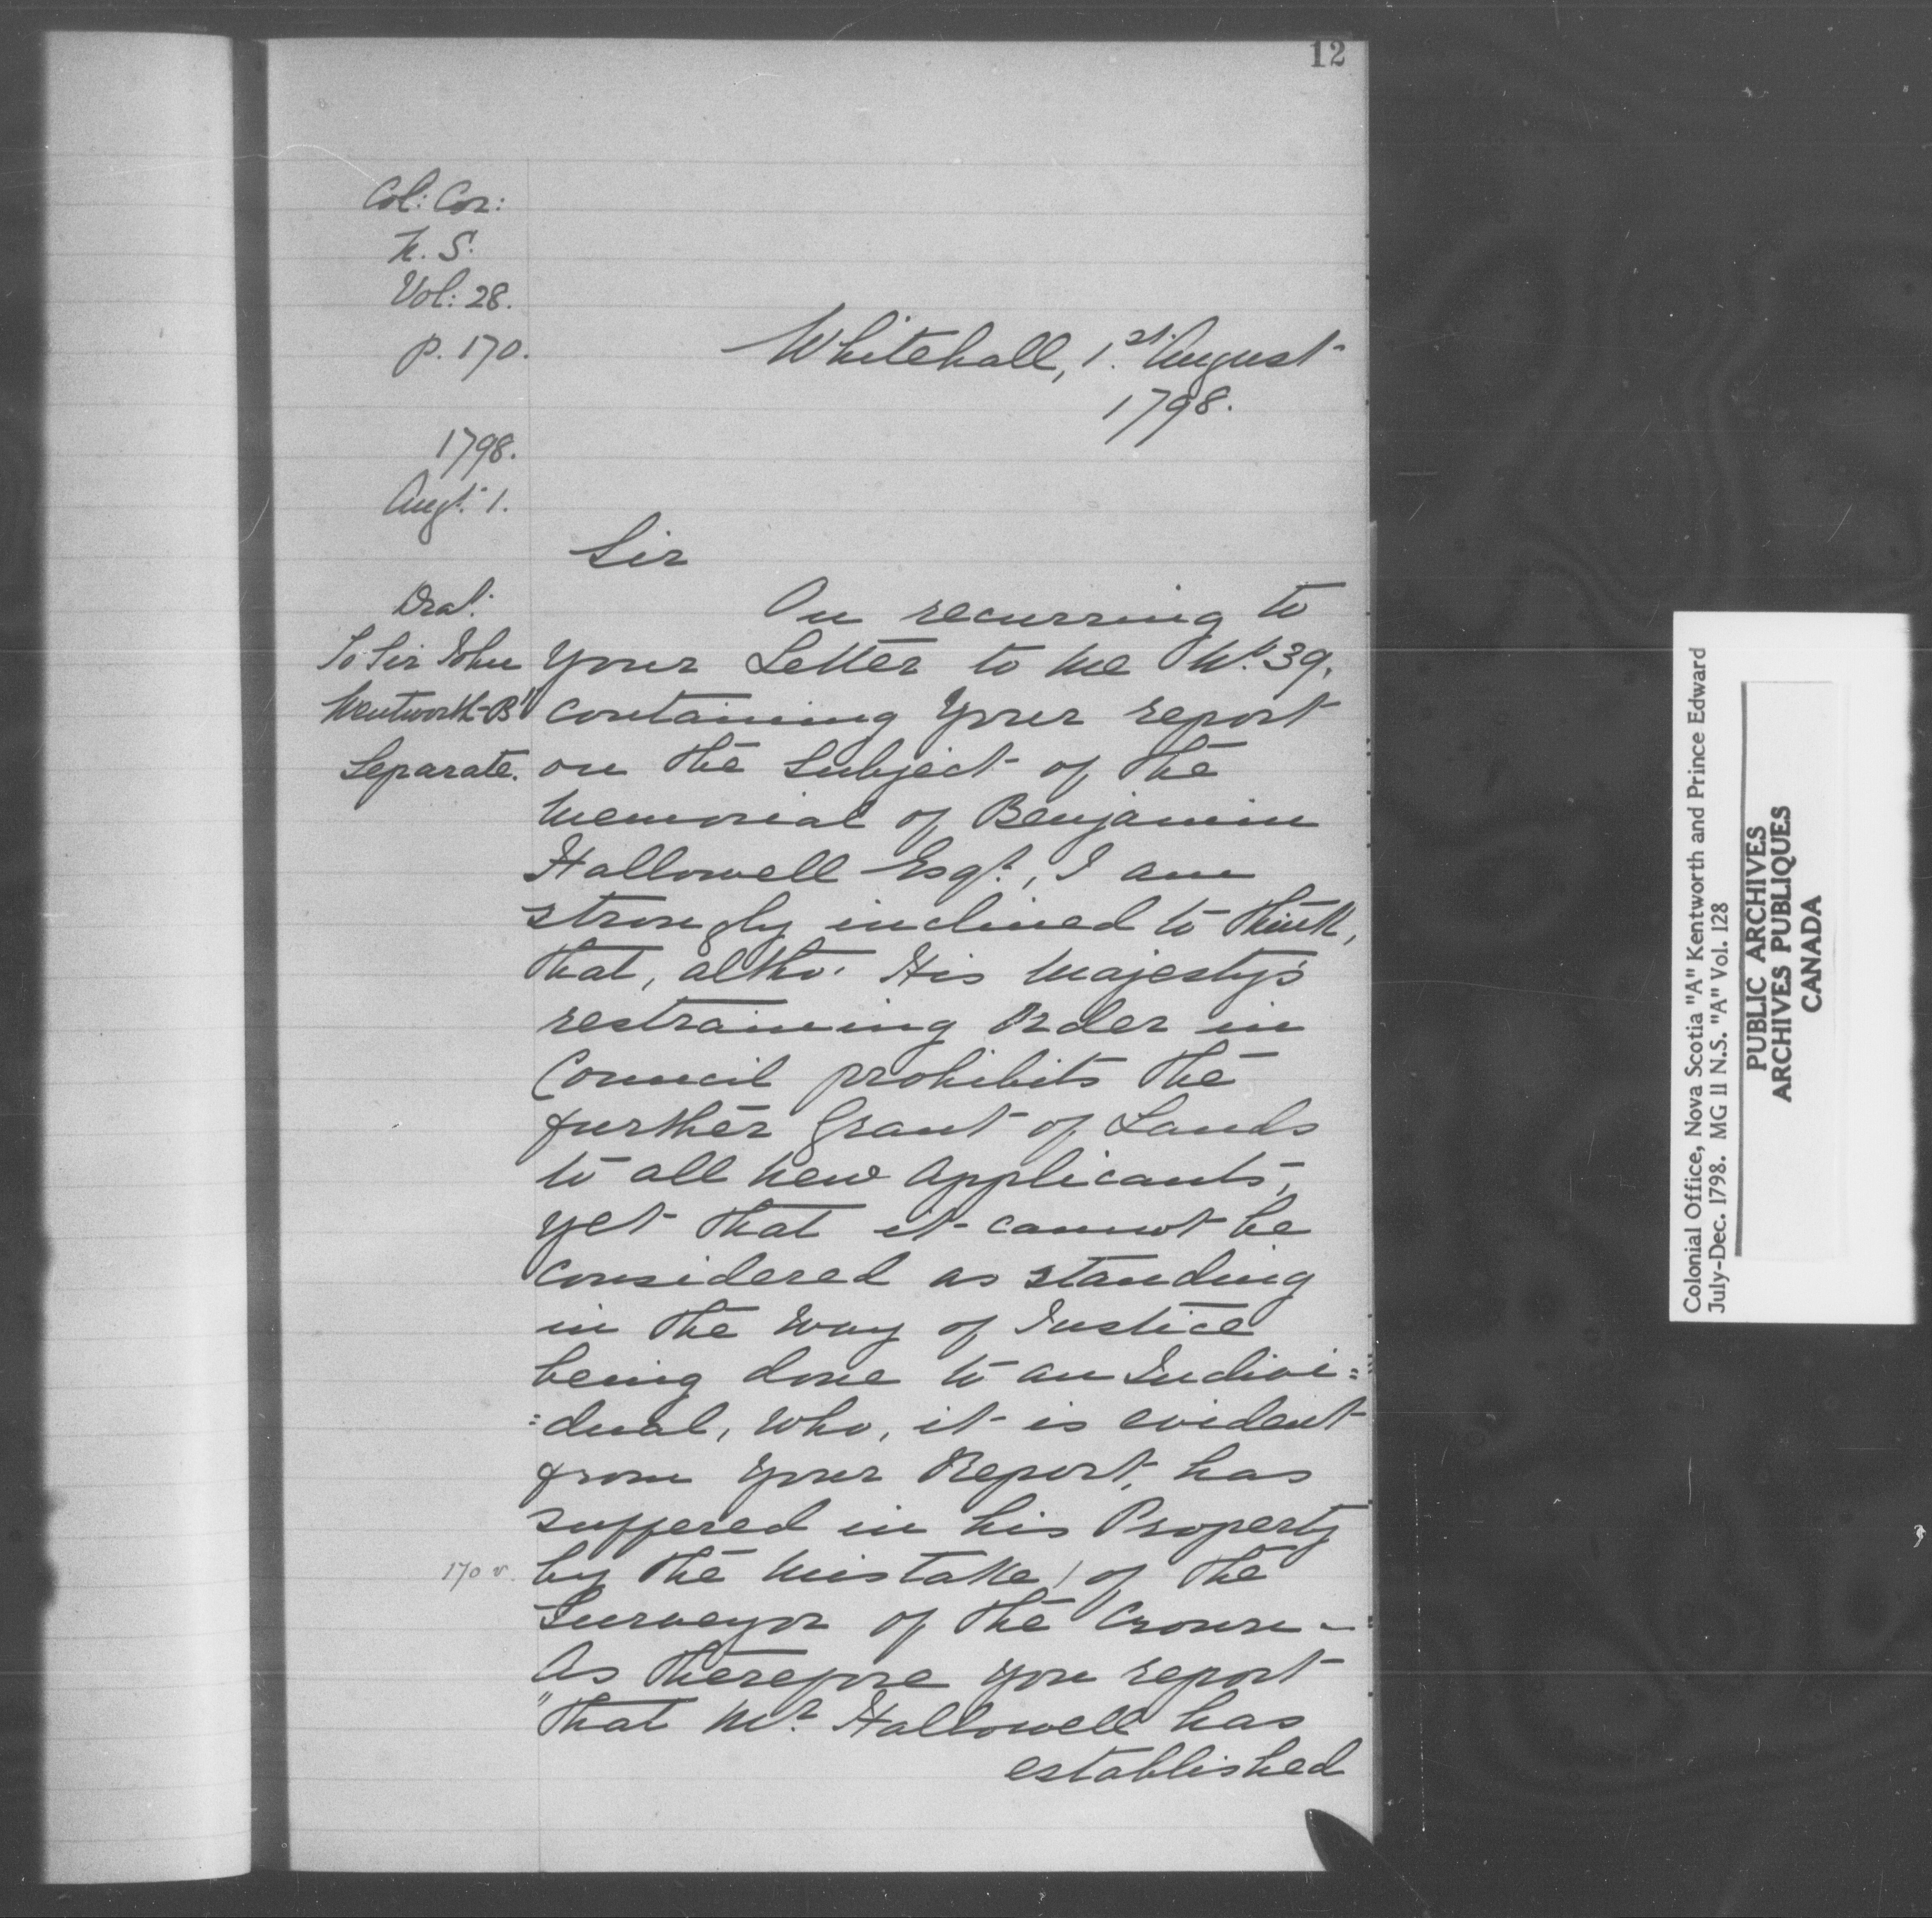 12
Col: Cor:
N. S.
Vol: 28.
p. 170.
Whitehall, 1st. August
1798.
1798.
Augt. 1.
Sir
Draft:
To Sir John
Wentworth Bt
Separate.
On recurring to
your Letter to me No. 39.
containing your report
on the Subject of the
Memorial of Benjamin
Hallowell Esqr., I am
strongly inclined to think,
that, altho' His Majesty's
restraining Order in
Council prohibits the
further Grant of Lands
to all new Applicants,
yet that it cannot be
considered as standing
in the way of Justice
being done to an Indivi=
=dual, who, it is evident
from your Report, has
suffered in his Property
170 v. by the mistake / of the
Surveyor of the Crown –
As therefore you report
"that Mr. Hallowell has
established
Colonial Office, Nova Scotia "A" Kentworth and Prince Edward
July-Dec. 1798. MG 11 N.S. "A" Vol. 128
PUBLIC ARCHIVES
ARCHIVES PUBLIQUES
CANADA